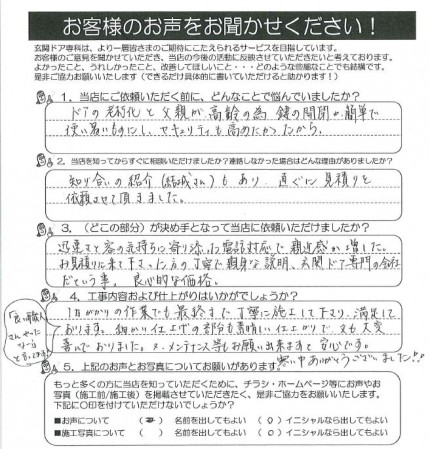 お客様のお声をお聞かせください！
玄関ドア専科は、より一層皆さまのご期待にこたえられるサービスを目指しています。
お客様のご意見を聞かせていただき、当店の今後の活動に反映させていただきたいと考えております。
よかったこと、うれしかったこと、改善してほしいこと・・・どのような些細なことでも結構です。
是非ご協力お願いいたします（できるだけ具体的に書いていただけると助かります！）
1．当店にご依頼いただく前に、どんなことで悩んでいましたか？
ドアの老朽化と父親が高齢の為 鍵の開閉が簡単で
使い易いものにし、セキュリティも高めたかったから。
2．当店を知ってからすぐに相談いただけましたか？連絡しなかった場合はどんな理由がありましたか？
知り合いの紹介(結城さん)もあり 直ぐに見積りを
依頼させて頂きました。
3．（どこの部分）が決め手となって当店に依頼いただけましたか？
迅速さと客の気持ちに寄り添った電話対応で親近感が増した。
お見積りに来て下さった方の丁寧で親身な説明、玄関ドア専門の会社
だという事。良心的な価格。
4．工事内容および仕上がりはいかがでしょうか？
1日がかりの作業でも最終まで丁寧に施工して下さり、満足して
おります。細かい仕上げの部分も素晴しい仕上がりで、父も大変
喜んでおりました。又、メンテナンス等もお願い出来ますと安心です。
寒い中ありがとうございました!!
「良い職人
さんやった
なー」
と言ってます
5．上記のお声とお写真についてお願いがあります。
もっと多くの方に当店を知っていただくために、チラシ・ホームページ等にお声やお
写真（施工前/施工後）を掲載させていただきたく、是非ご協力をお願いいたします。
下記に〇印を付けていただけないでしょうか？
■お声について （ ） 名前を出してもよい （〇）イニシャルなら出してもよい
■施工写真について （ ） 名前を出してもよい （〇）イニシャルなら出してもよい